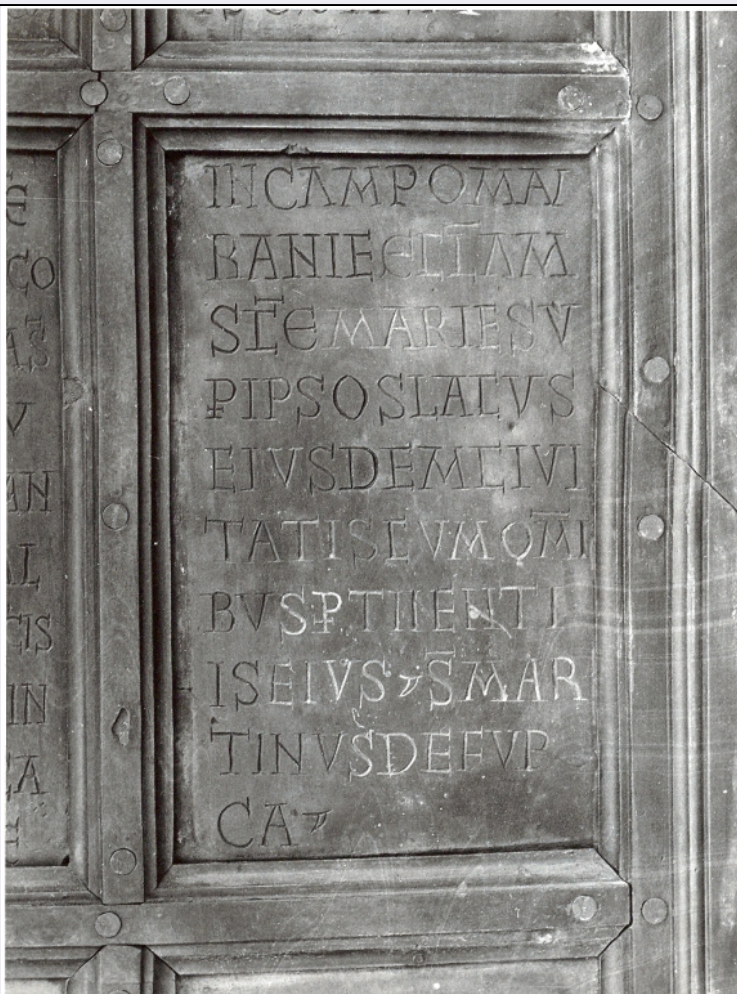 INCAMPOMAI
RANIEECL̄AM
SC̄EMARIESV
P̱IPSOSLACVS
EIVSDEMCIVI
TATISCVMOM̄I
BVSP̱TINENTI
ISEIVS⁊S̄MAR
TINVSDEFVR
CA⁊
CO
AS̄
V
AN
AL
CIS
IN
CA